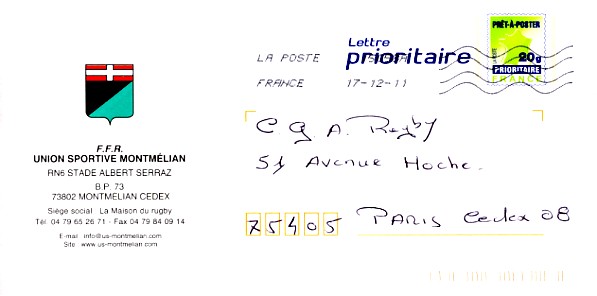 F.F.R.
UNION SPORTIVE MONTMÉLIAN
RN6 STADE ALBERT SERRAZ
B.P. 73
73802 MONTMELIAN CEDEX
Siège social : La Maison du rugby
Tél. 04 79 65 26 71 - Fax 04 79 84 09 14
E-mail : info@us-montmelian.com
Site : www.us-montmelian.com
LA POSTE
FRANCE 17-12-11
Lettre
prioritaire
PRÊT-À-POSTER
20g
PRIORITAIRE
FRANCE
C G A. Rugby
51 Avenue Hoche.
75405 PARIS Cedex 08